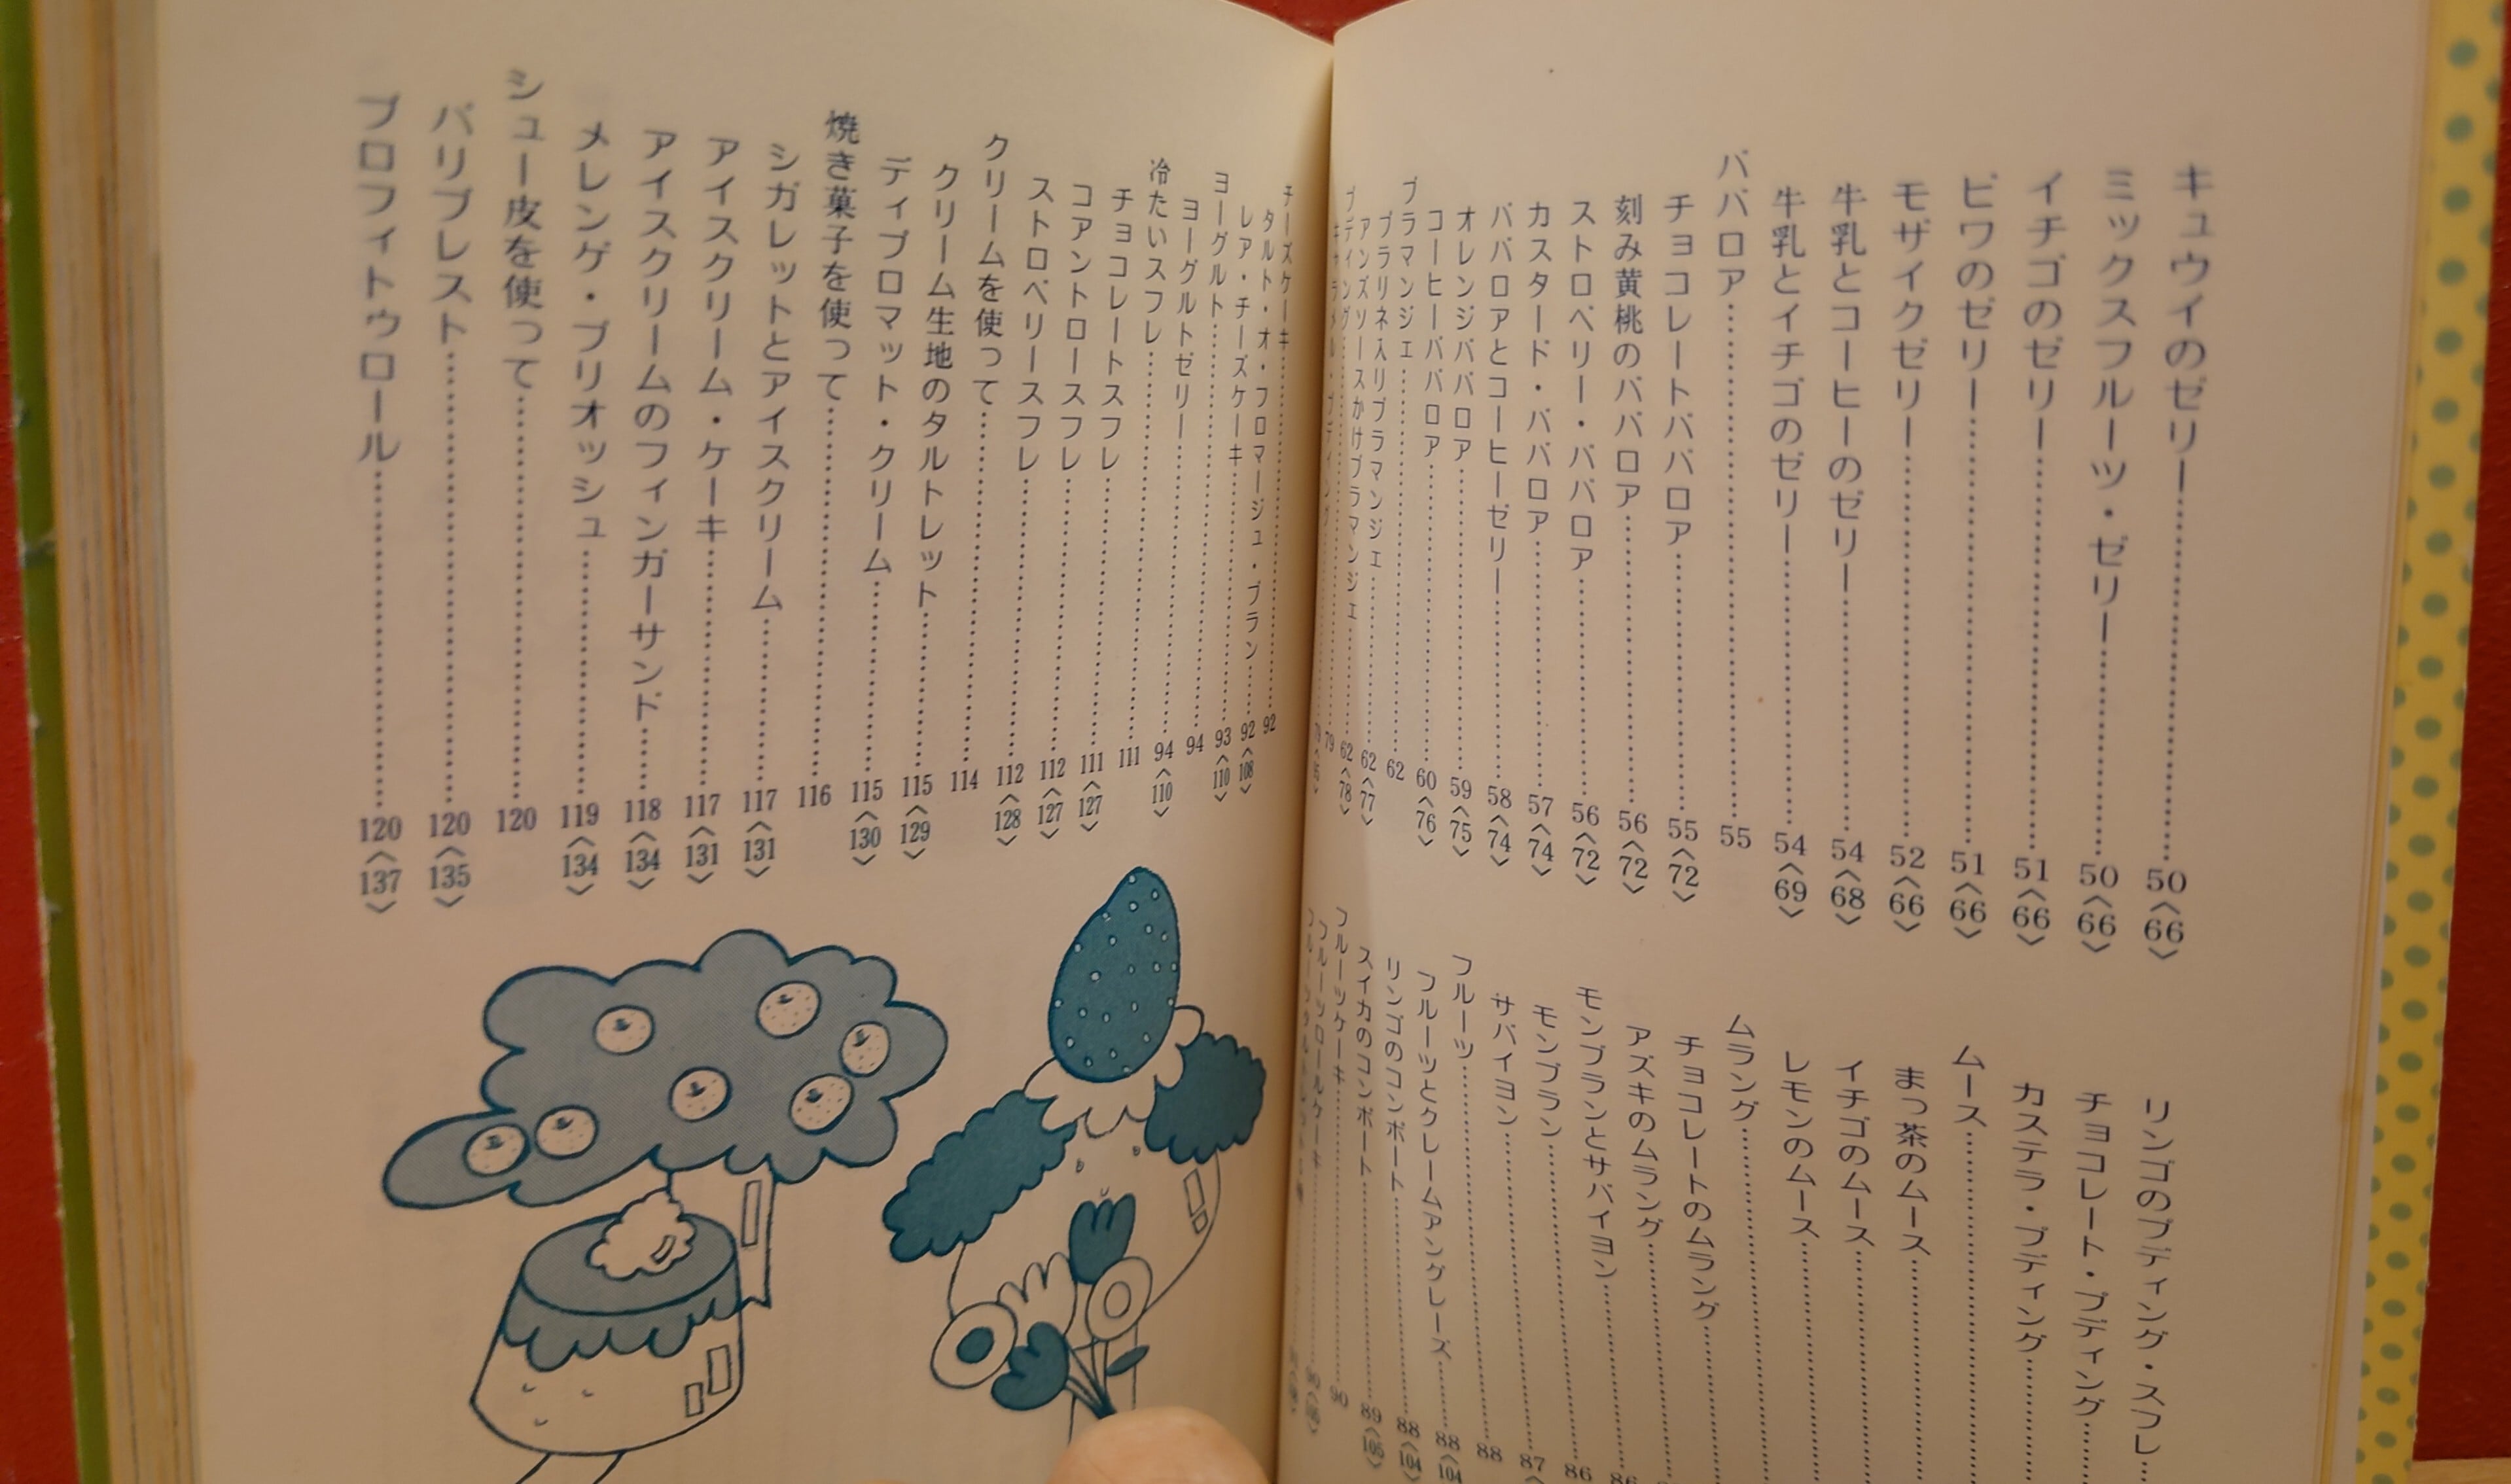 キュウイのゼリー……50〈66〉
ミックスフルーツ・ゼリー……50〈66〉
イチゴのゼリー……51〈66〉
ビワのゼリー……51〈66〉
モザイクゼリー……52〈66〉
牛乳とコーヒーのゼリー……54〈68〉
牛乳とイチゴのゼリー……54〈69〉
ババロア……55
チョコレートババロア……55〈72〉
刻み黄桃のババロア……56〈72〉
ストロベリー・ババロア……56〈72〉
カスタード・ババロア……57〈74〉
ババロアとコーヒーゼリー……58〈74〉
オレンジババロア……59〈75〉
コーヒーババロア……60〈76〉
ブラマンジェ……62
プラリネ入りブラマンジェ……62〈77〉
アンズソースかけブラマンジェ……62〈78〉
プディング……79
リンゴのプディング・スフレ……
チョコレート・プディング……
カステラ・プディング……
ムース……
まっ茶のムース……
イチゴのムース……
レモンのムース……
ムラング……
チョコレートのムラング……
アズキのムラング……
モンブランとサバイヨン……86
モンブラン……86
サバイヨン……87
フルーツ……88
フルーツとクレームアングレーズ……88〈104
リンゴのコンポート……88〈104〉
スイカのコンポート……89〈105〉
フルーツケーキ……90
フルーツロールケーキ……90
チーズケーキ……92
タルト・オ・フロマージュ・ブラン……92〈108〉
レア・チーズケーキ……93〈110〉
ヨーグルト……94
ヨーグルトゼリー……94〈110〉
冷たいスフレ……111
チョコレートスフレ……111〈127〉
コアントロースフレ……112〈127〉
ストロベリースフレ……112〈128〉
クリームを使って……114
クリーム生地のタルトレット……115〈129〉
ディプロマット・クリーム……115〈130〉
焼き菓子を使って……116
シガレットとアイスクリーム……117〈131〉
アイスクリーム・ケーキ……117〈131〉
アイスクリームのフィンガーサンド……118〈134〉
メレンゲ・ブリオッシュ……119〈134〉
シュー皮を使って……120
パリブレスト……120〈135〉
プロフィトゥロール……120〈137〉